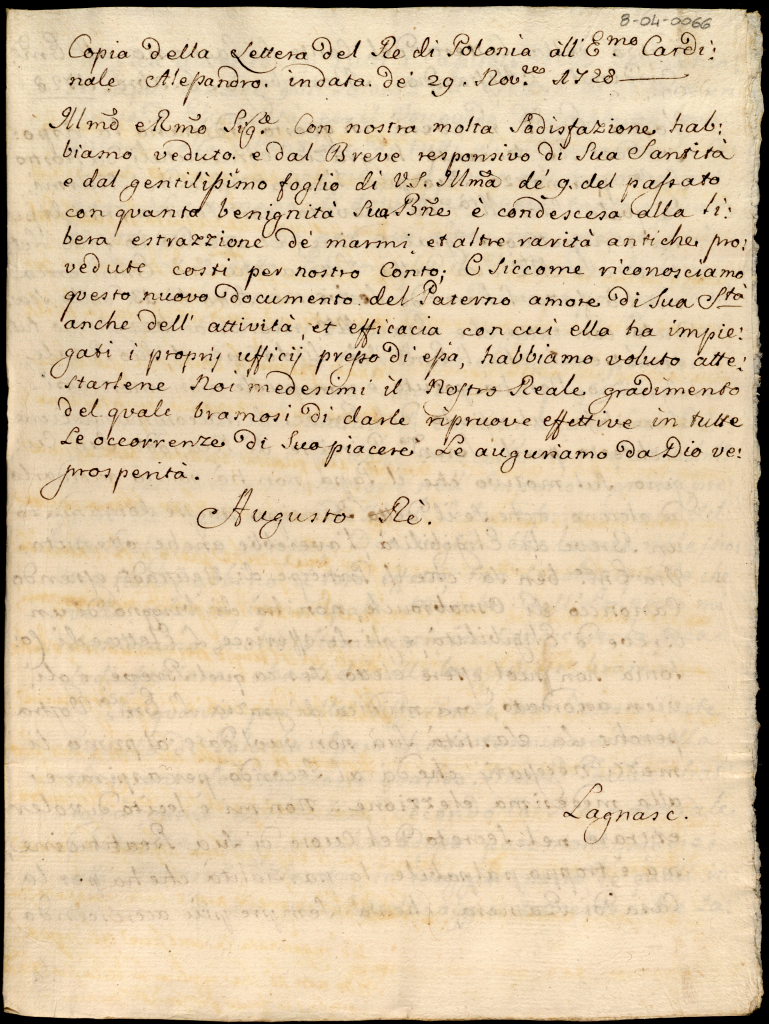 8-04-0066
Copia della Lettera del Re di Polonia all' E.mo Cardi:
nale Alessandro. in data. de' 29. Nov.re 1728
Illmo e Rmo Sig.re Con nostra molta Sadisfazione hab:
biamo veduto. e dal Breve responsivo di Sua Santità
e dal gentilissimo foglio di V.S. Illma de' 9. del passato
con quanta benignità Sua Bne è condescesa alla li:
bera estrazzione de' marmi, et altre rarità antiche pro:
vedute costi per nostro Conto; E Siccome riconosciamo
questo nuovo documento del Paterno amore di Sua Stà
anche dell' attività, et efficacia con cui ella ha impie:
gati i proprij ufficij presso di essa, habbiamo voluto atte:
starlene Noi medesimi il Nostro Reale gradimento
del quale bramosi di darle ripruove effettive in tutte
Le occorrenze di Suo piacere Le auguriamo da Dio ve:
prosperità.
Augusto Rè.
Lagnasc.